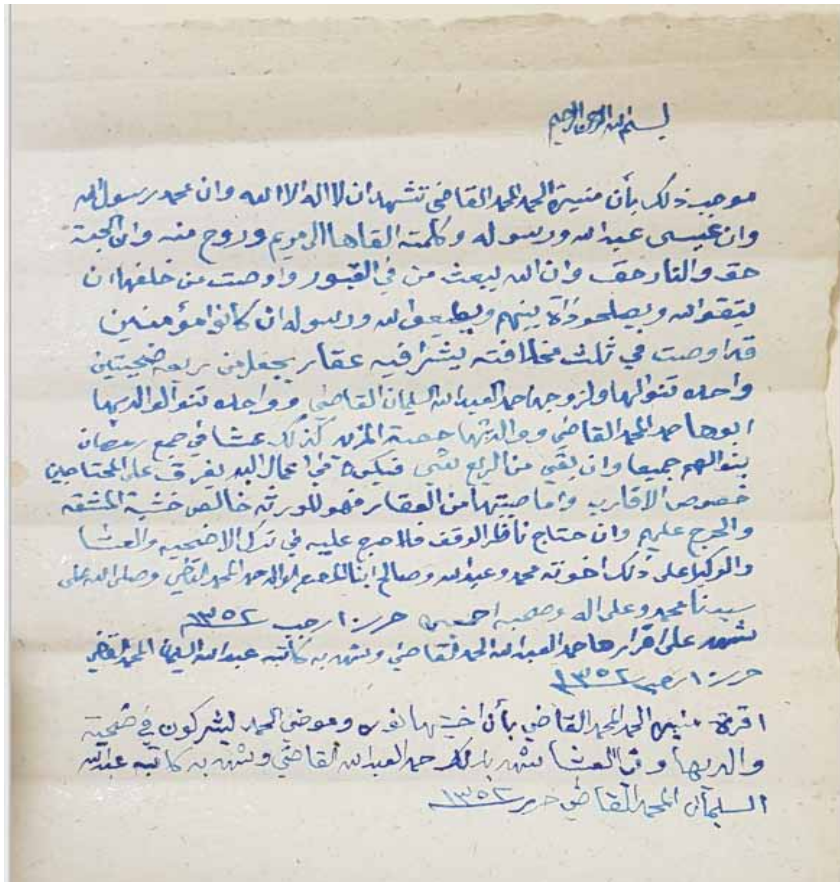 بسم الله الرحمن الرحيم
موجب ذلك بأن منيرة الحمد المحمد القاضي تشهد ان لا اله الا الله وان محمد رسول الله
وان عيسى عبد الله ورسوله وكلمته القاها الى مريم وروح منه وان الجنة
حق والنار حق وان الله يبعث من في القبور واوصت من خلفها ان
يتقو الله ويصلحو ذاة بينهم ويطيعو الله ورسوله ان كانوا مؤمنين
قد اوصت في ثلث مخلافته يشترا فيه عقار يجعل من ريعه ضحيتين
واحده تنوالها ولزوجها حمد العبد الله السليمان القاضي وواحده تنوا لوالديها
ابوها حمد المحمد القاضي ووالدتها حصة المزيد كذلك عشا في جمع رمضان
ينوالهم جميعا وان بقي من الريع شي فيكون في اعمال البر يفرق على المحتاجين
خصوص الاقارب واما صيتها من العقار فهو للورثه خالص خشية المشقه
والحرج عليهم وان حتاج ناظر الوقف فلا حرج عليه في ترك الاضحيه والعشا
والوكيل على ذلك اخوته محمد وعبد الله وصالح ابنا الوالد حمد المحمد القاضي وصلى الله على
سيدنا محمد وعلى اله وصحبه اجمعين حرر ١٠ رجب ١٣٥٢
شهد على اقرارها حمد العبد الله الحمد القاضي وشهد به كاتبه عبد الله السليمان المحمد القاضي
حرر ١٠ رجب ١٣٥٢
اقرة منيره الحمد المحمد القاضي بأن اخيتها نوره وموضي الحمد يشركون في ضحية
والديها وفي العشا شهد بذلك حمد العبد الله القاضي وشهد به كاتبه عبد الله
السليمان المحمد القاضي حرر ١٣٥٢